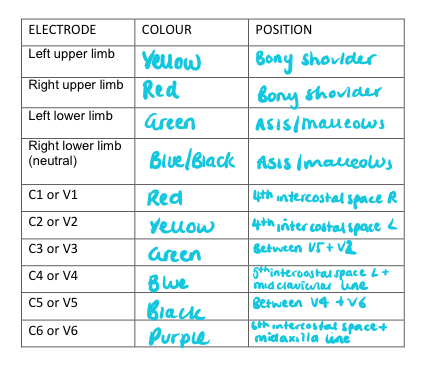 ELECTRODE COLOUR POSITION
Left upper limb Yellow Bony shoulder
Right upper limb Red Bony shoulder
Left lower limb Green ASIS/malleolus
Right lower limb
(neutral) Blue/Black ASIS/malleolus
C1 or V1 Red 4th intercostal space R
C2 or V2 Yellow 4th intercostal space L
C3 or V3 Green Between V5 + V2
C4 or V4 Blue 5th intercostal space L +
midclavicular line
C5 or V5 Black Between V4 + V6
C6 or V6 Purple 6th intercostal space +
midaxilla line